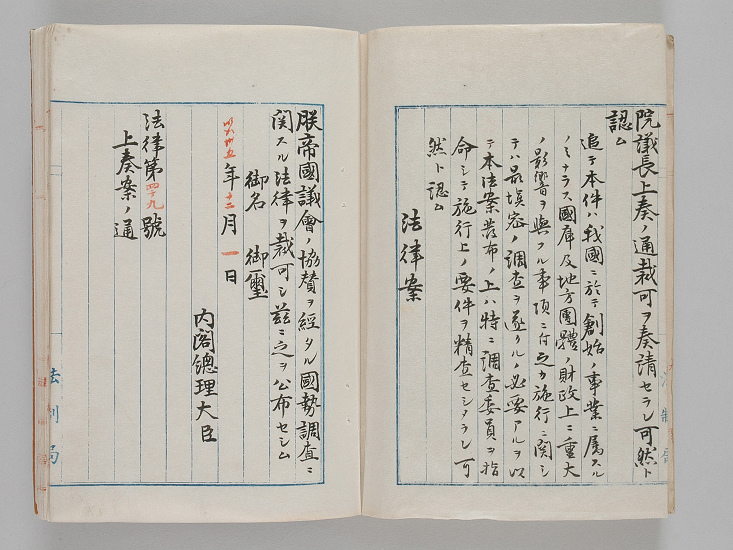 院議長上奏ノ通裁可ヲ奏請セラレ可然ト
認ム
追テ本件ハ我國ニ於テ創始ノ事業ニ属スル
ノミナラス國庫及地方團體ノ財政上ニ重大
ノ影響ヲ與フル事項ニ付之カ施行ニ関シ
テハ最慎密ノ調査ヲ遂クルノ必要アルヲ以
テ本法案發布ノ上ハ特ニ調査委員ヲ指
命シテ施行上ノ要件ヲ精査セシメラレ可
然ト認ム
法律案
朕帝國議會ノ協賛ヲ經タル國勢調査ニ
関スル法律ヲ裁可シ茲ニ之ヲ公布セシム
御名 御璽
明治卅五年十二月一日
内閣總理大臣
法律第四十九號
上奏案ノ通
法制局